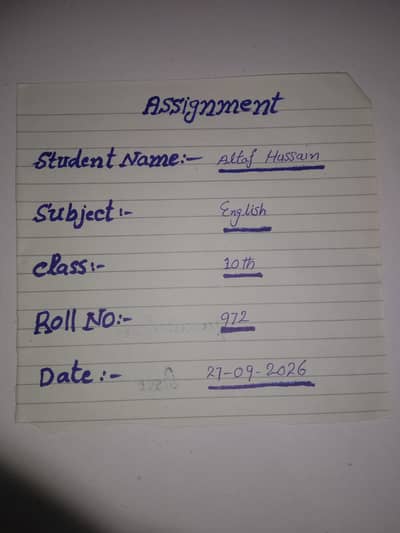 Assignment
Student Name:- Altaf Hussain
Subject:- English
class:- 10th
Roll NO:- 972
Date:- 27-09-2026